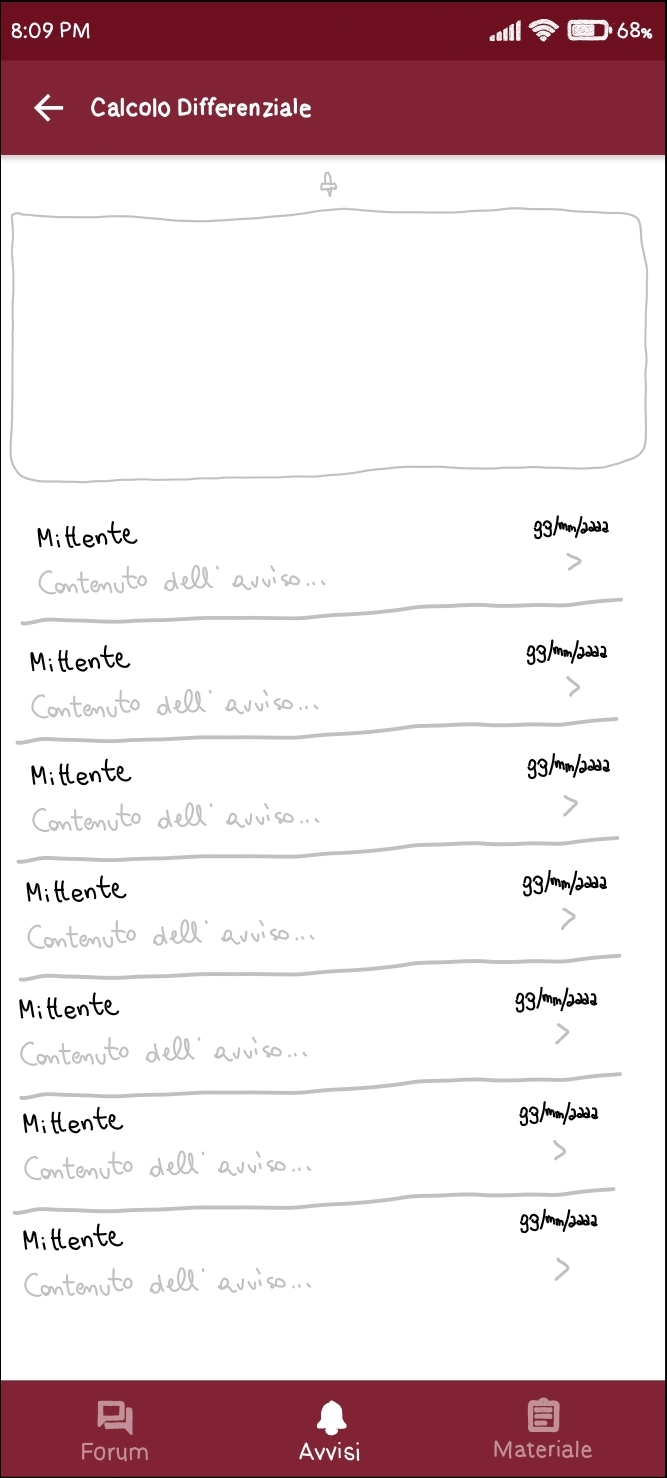 8:09 PM 68%
Calcolo Differenziale
Mittente gg/mm/aaaa
Contenuto dell' avviso...
Mittente gg/mm/aaaa
Contenuto dell' avviso...
Mittente gg/mm/aaaa
Contenuto dell' avviso...
Mittente gg/mm/aaaa
Contenuto dell' avviso...
Mittente gg/mm/aaaa
Contenuto dell' avviso...
Mittente gg/mm/aaaa
Contenuto dell' avviso...
Mittente gg/mm/aaaa
Contenuto dell' avviso...
Forum Avvisi Materiale